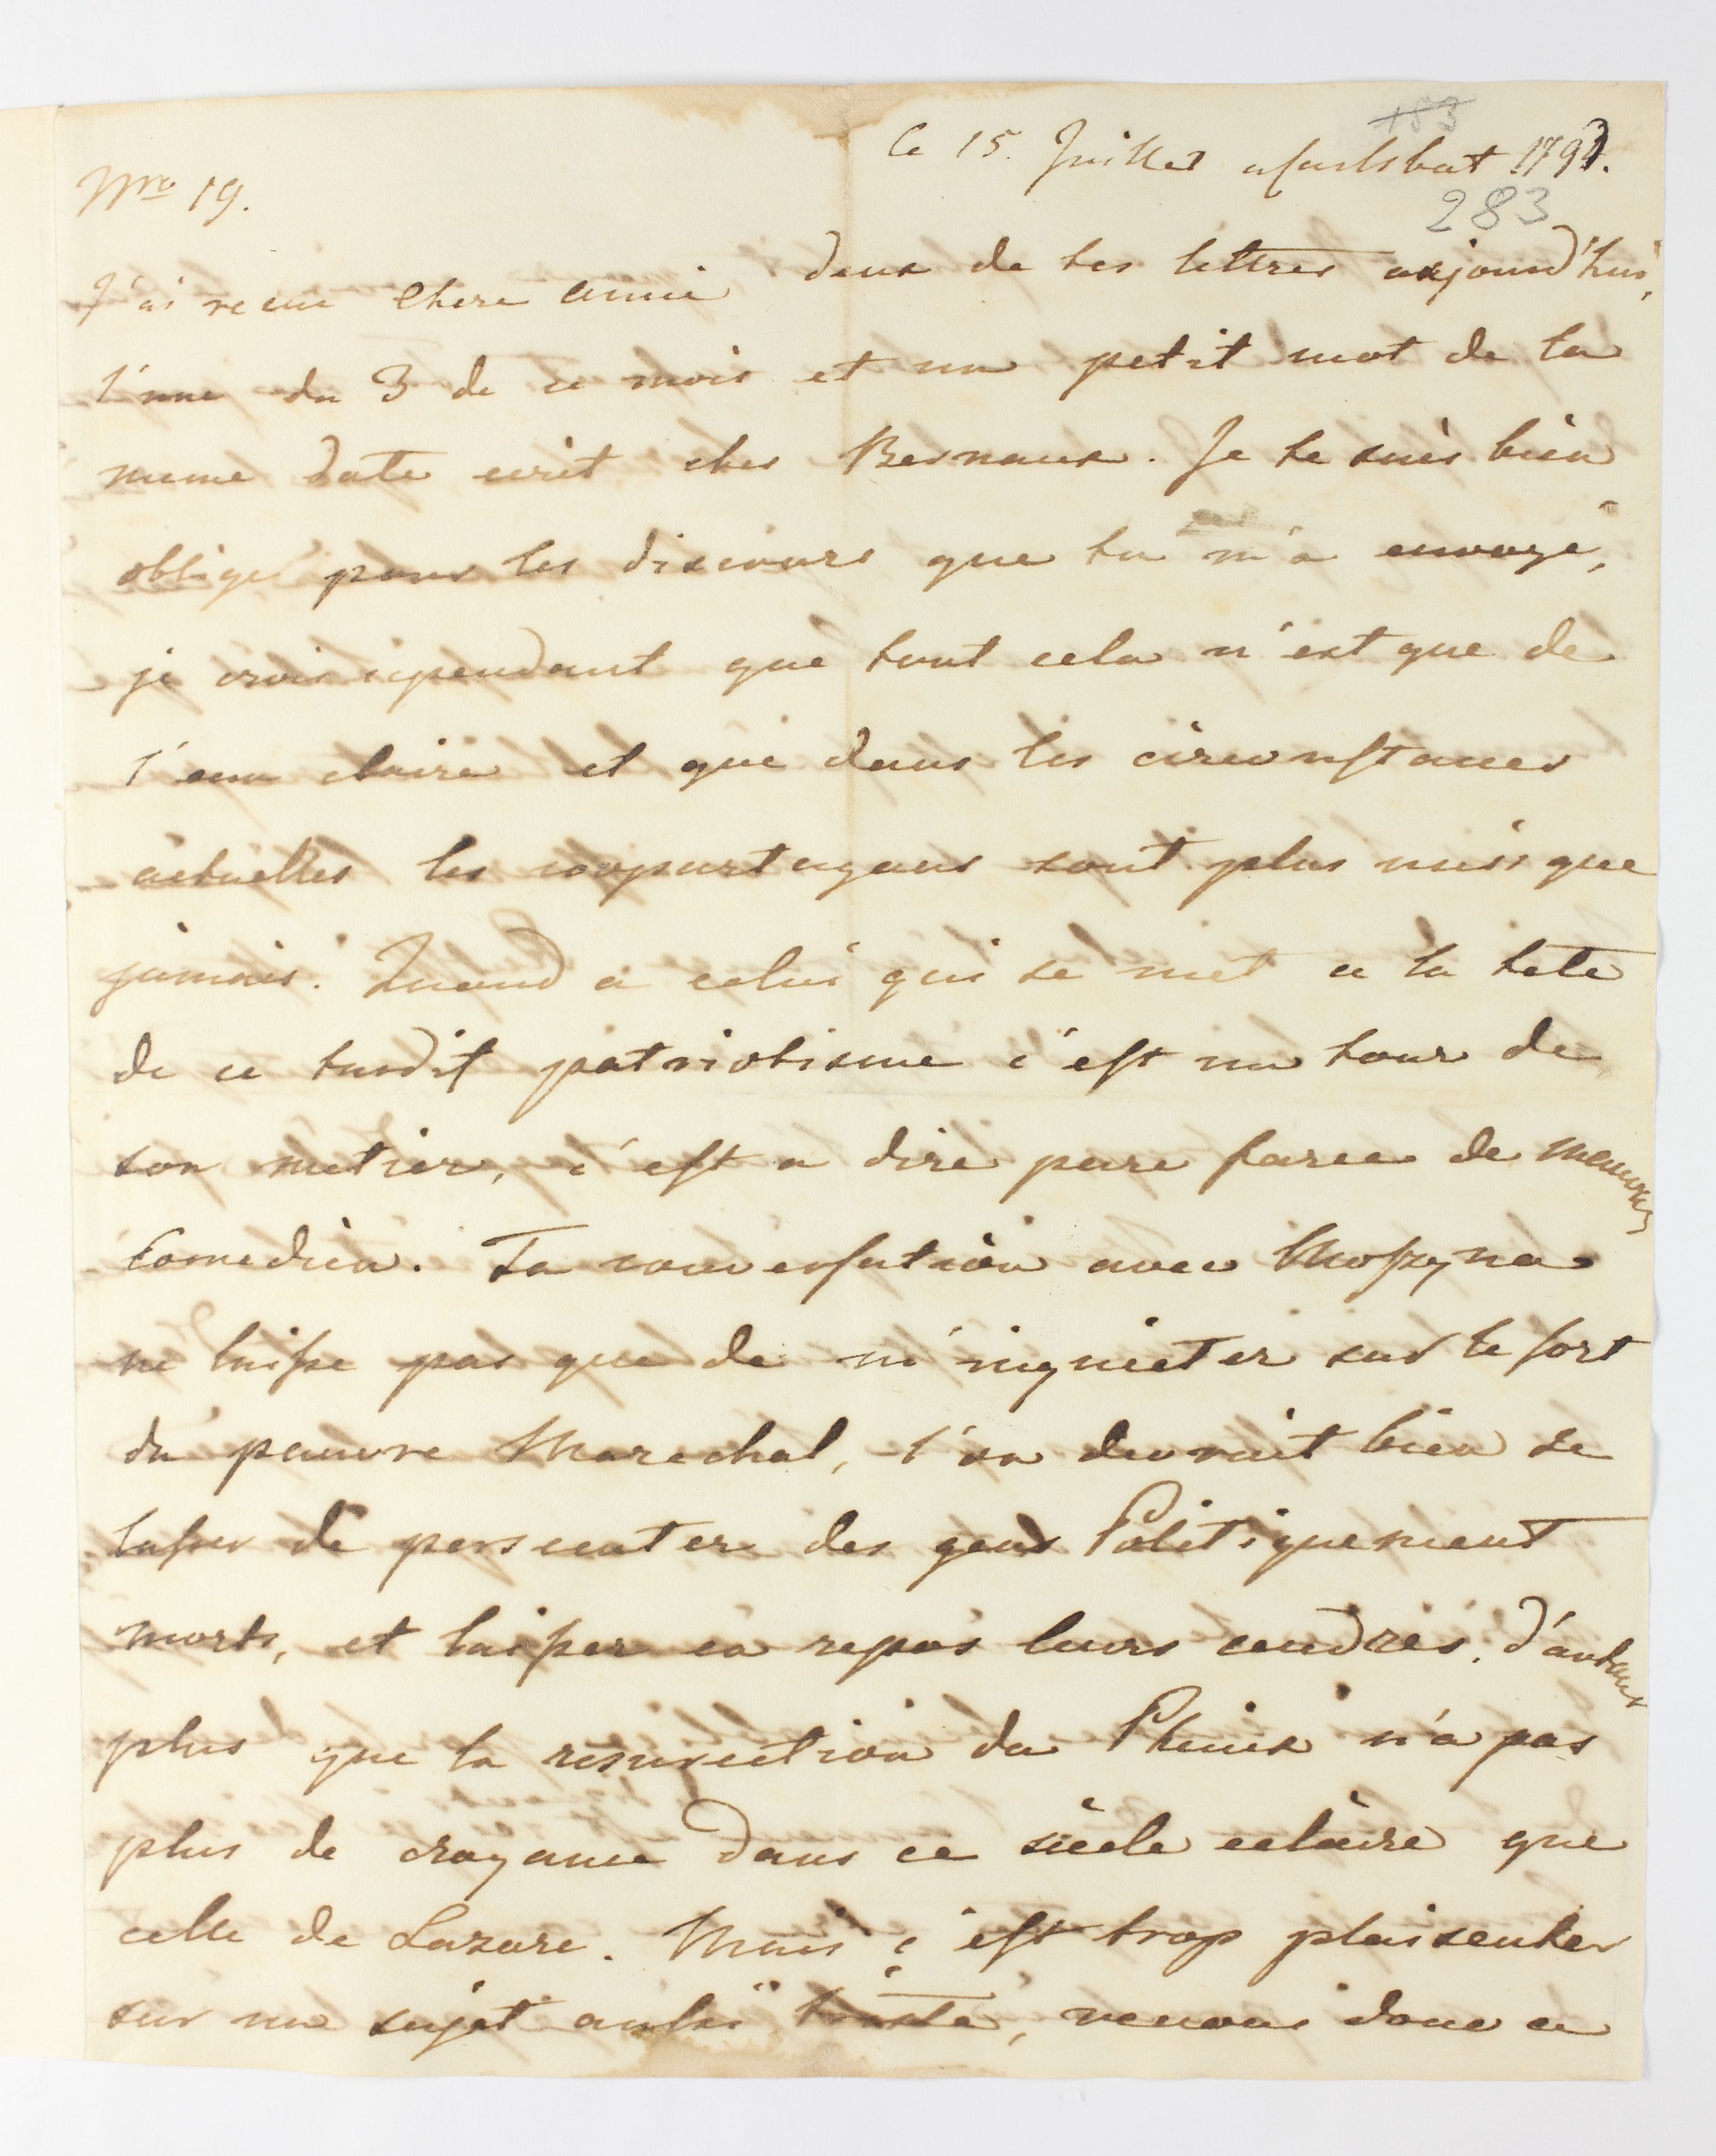 Ce 15. Juillet a Carlsbat 1793.
183
283
Nro 19.
J'ai recue Chere Amie deux de tes lettres aujourd'hui,
l'une du 3 de ce mois et un petit mot de la
meme date ecrit ches Bernaux. Je te suis bien
obligé pour les discours que tu m'a envoyé,
je crois cependant que tout cela n'est que de
l'eau claire et que dans les circonstances
actuelles les copartageans sont plus unis que
jamais. Quand a celui qui se met a la tete
de ce susdit patriotisme c'est un tour de
son metier, c'est a dire pure farce de mauvais
Comedien. Ta conversation avec Moszyna
ne laisse pas que de m'inquieter sur le sort
du pauvre Marechal, l'on devroit bien se
lasser de persecuter des gens Politiquement
morts, et laisser en repos leurs cendres, d'autant
plus que la resurection du Phenix n'a pas
plus de croyance dans ce siècle eclaire que
celle de Lazare. Mais c'est trop plaisenter
sur un sujet aussi triste, venons donc a